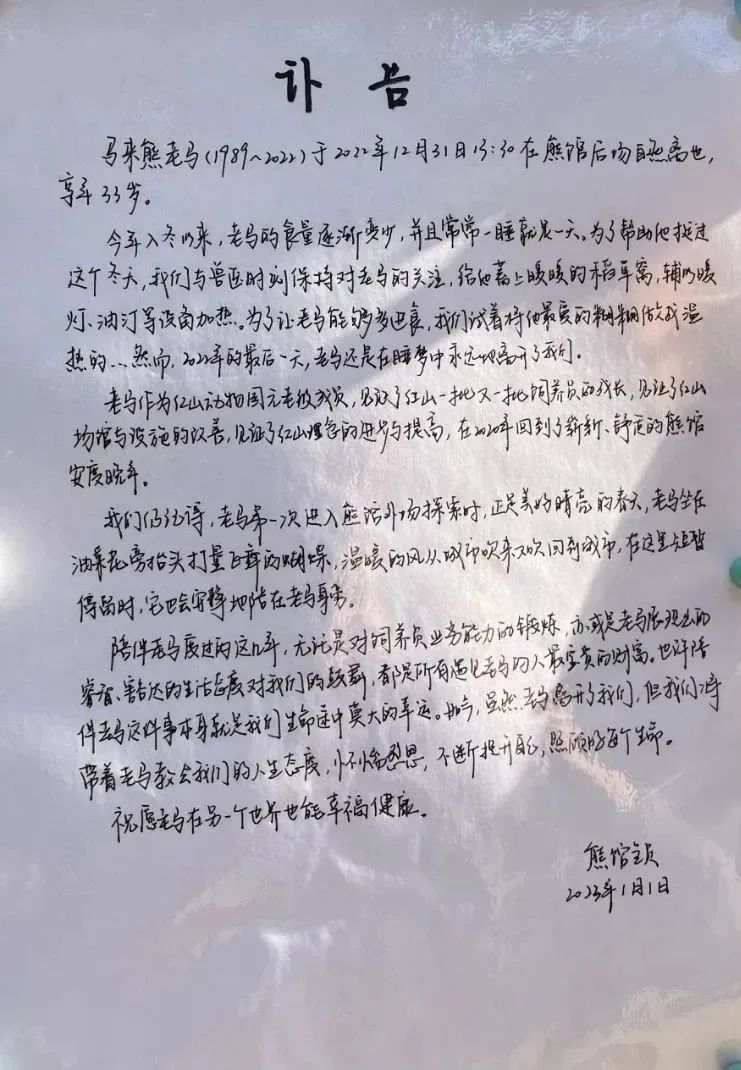 讣告
马来熊老马(1989~2022)于2022年12月31日13:30在熊馆后场自然离世,
享年33岁。
今年入冬以来,老马的食量逐渐变少,并且常常一睡就是一天。为了帮助他挺过
这个冬天,我们与兽医时刻保持对老马的关注,给他蓄上暖暖的稻草窝,辅以暖
灯、油汀等设备加热。为了让老马能够多进食,我们试着将他最爱的糊糊做成温
热的...然而,2022年的最后一天,老马还是在睡梦中永远地离开了我们。
老马作为红山动物园元老级成员,见证了红山一批又一批饲养员的成长,见证了红山
场馆与设施的改善,见证了红山理念的进步与提高,在2020年回到了崭新、舒适的熊馆
安度晚年。
我们仍记得,老马第一次进入熊馆外场探索时,正是美好晴亮的春天,老马坐在
油菜花旁抬头打量飞舞的蝴蝶,温暖的风从城市吹来又吹回到城市,在这里短暂
停留时,它也会安静地陪在老马身旁。
陪伴老马度过的这几年,无论是对饲养员业务能力的锻炼,亦或是老马展现出的
睿智、豁达的生活态度对我们的鼓舞,都是所有遇见老马的人最宝贵的财富。也许陪
伴老马这件事本身就是我们生命途中莫大的幸运。如今,虽然老马离开了我们,但我们将
带着老马教会我们的人生态度,怀念感恩,不断提升自己,照顾好每个生命。
祝愿老马在另一个世界也能幸福健康。
熊馆全员
2023年1月1日